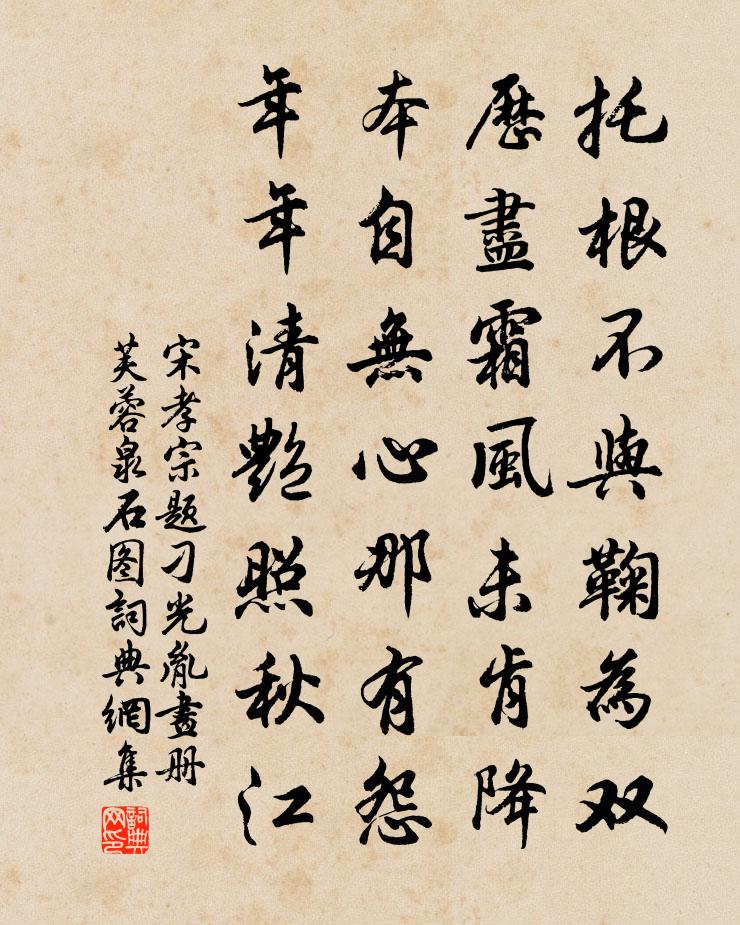 托根不與鞠為双
歷盡霜風未肯降
本自無心那有怨
年年清艷照秋江
宋孝宗題刁光胤畫册
芙蓉泉石图詞典網集
詞典网印